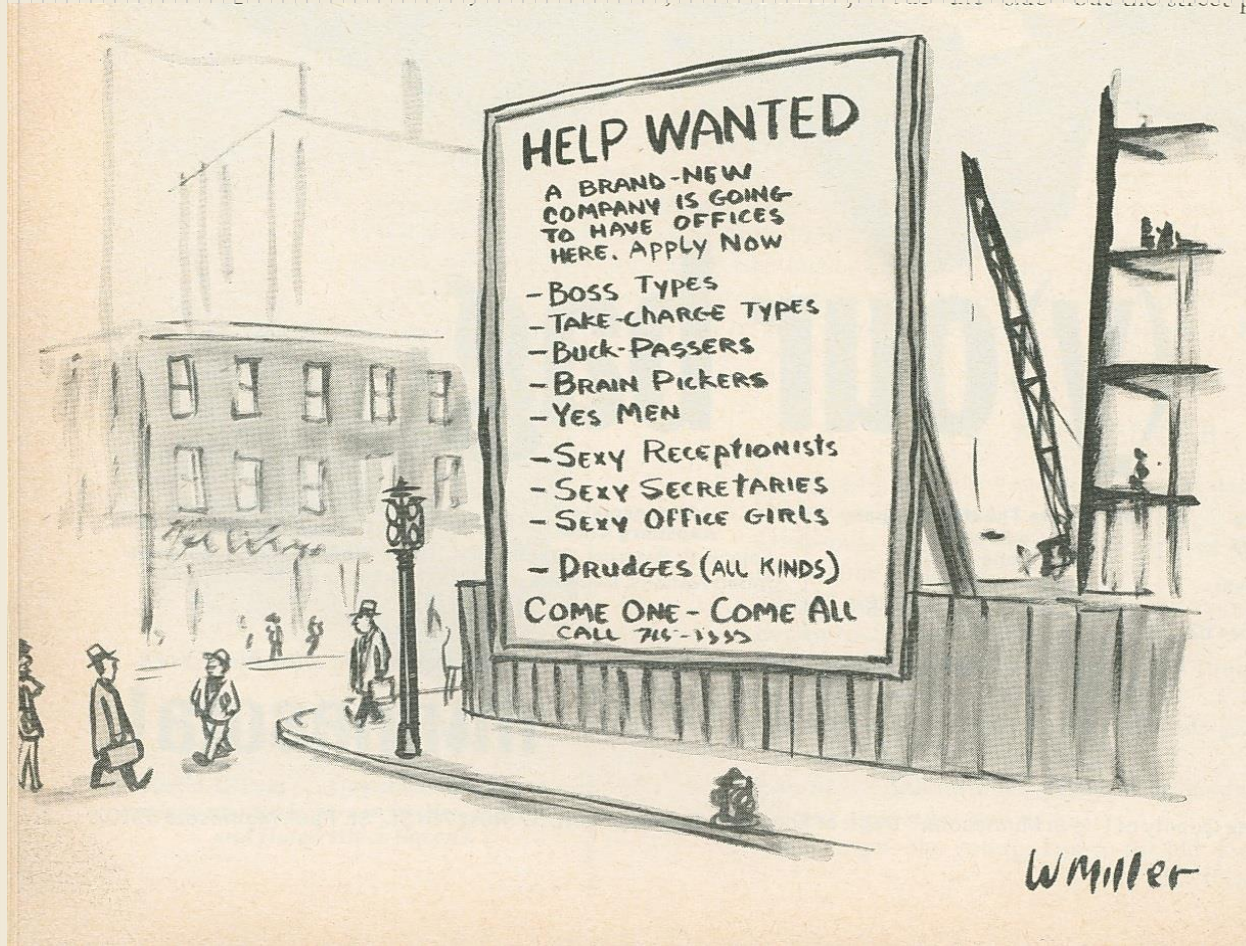 HELP WANTED
A BRAND-NEW
COMPANY IS GOING
TO HAVE OFFICES
HERE. APPLY NOW
-BOSS TYPES
-TAKE-CHARGE TYPES
-BUCK-PASSERS
-BRAIN PICKERS
-YES MEN
-SEXY RECEPTIONISTS
-SEXY SECRETARIES
-SEXY OFFICE GIRLS
-DRUDGES (ALL KINDS)
COME ONE - COME ALL
CALL
W Miller